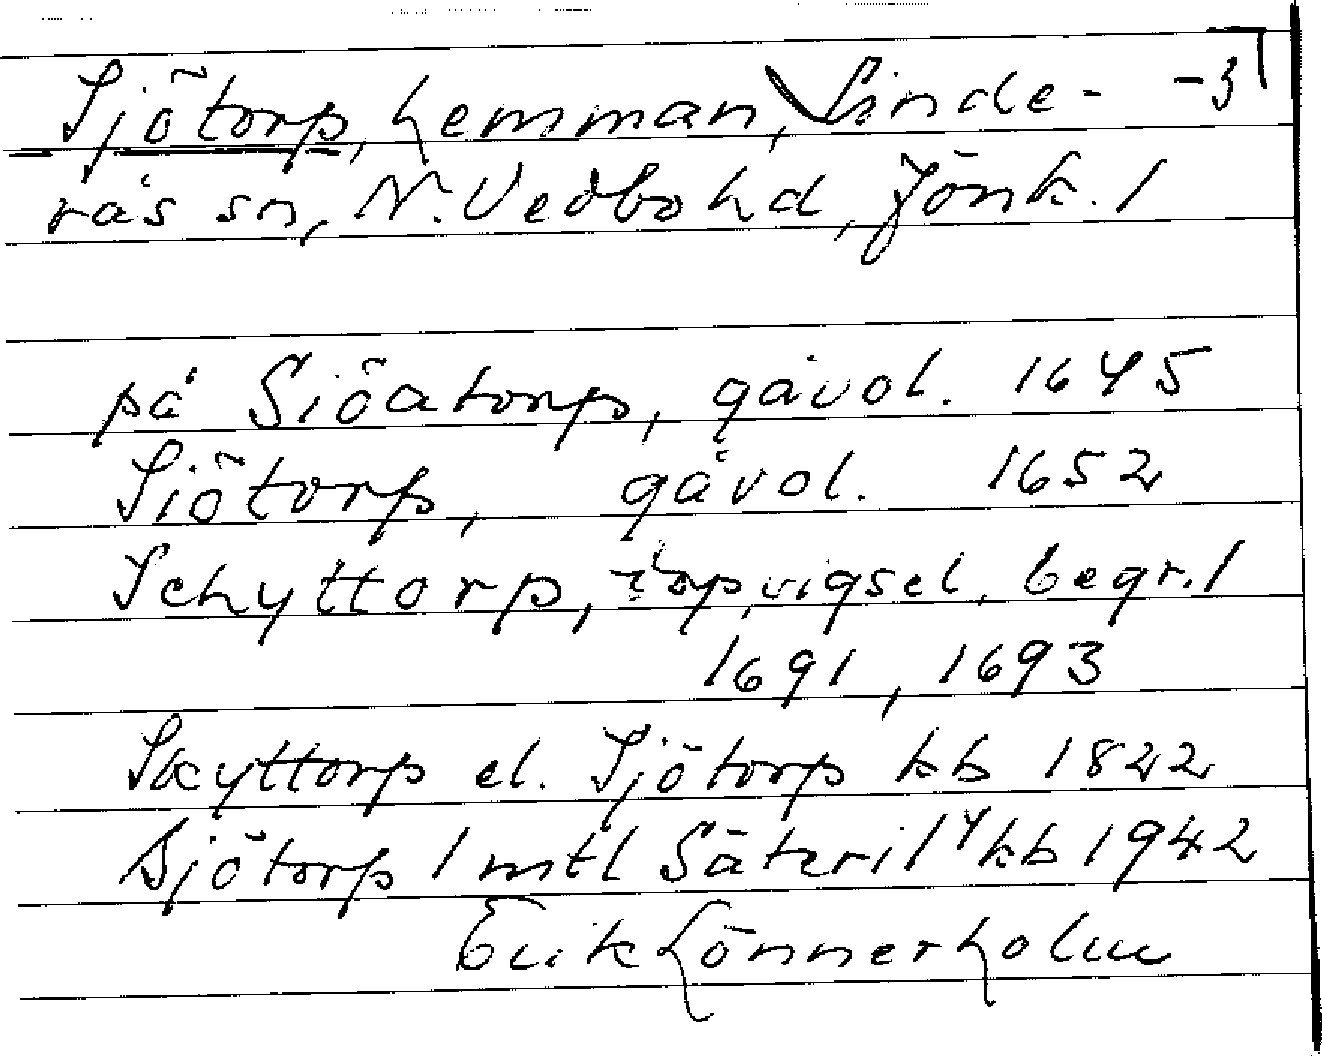 Sjötorp, hemman, Linde- -31
rås sn, N. Vedbo hd, Jönk. l
på Siöatorp, gåvol. 1645
Siötorp, gåvol. 1652
Schyttorp, dop, vigsel, begr. l
1691, 1693
Skyttorp el. Sjötorp kb 1822
Sjötorp 1 mtl Säteri kb 1942
Erik Lönnerholm